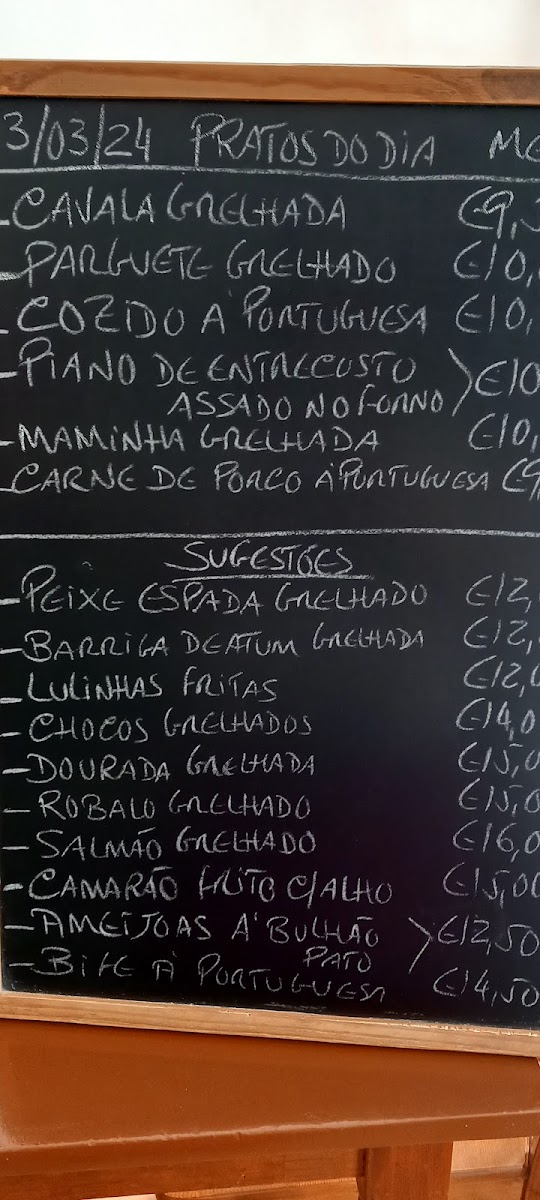 3/03/24 PRATOS DO DIA ME
- CAVALA GRELHADA €9,5
- PARGUETE GRELHADO €10,
- COZIDO À PORTUGUESA €10,
- PIANO DE ENTRECOSTO
ASSADO NO FORNO > €10
- MAMINHA GRELHADA €10,
- CARNE DE PORCO À PORTUGUESA €9
SUGESTÕES
- PEIXE ESPADA GRELHADO €12,
- BARRIGA DE ATUM GRELHADA €12,
- LULINHAS FRITAS €12,0
- CHOCOS GRELHADOS €14,0
- DOURADA GRELHADA €15,0
- ROBALO GRELHADO €15,0
- SALMÃO GRELHADO €16,0
- CAMARÃO FRITO C/ALHO €15,00
- AMEIJOAS À BULHÃO
PATO > €12,50
- BIFE À PORTUGUESA €14,50